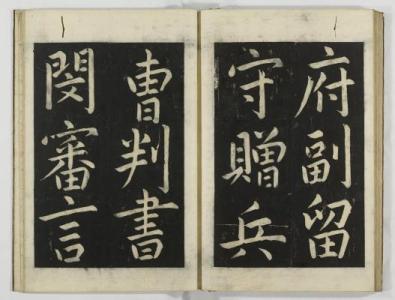 府副留
守贈兵
曺判書
閔審言